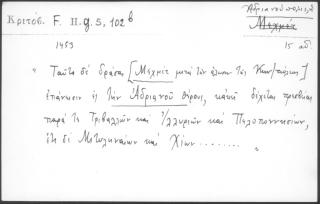 Κριτόβ. F. H. g. 5, 102b
Ἀδριανούπολις
Μεχμὲτ
1453
15 αἰ.
" Ταῦτα δὲ δράσας [Μεχμὲτ μετὰ τὴν ἅλωσιν τῆς Κων/πόλεως]
ἐπάνεισιν ἐς τὴν Ἀδριανοῦ θέρους, κἀκεῖ δέχεται πρεσβείας
παρά τε Τριβαλλῶν καὶ Ἰλλυριῶν καὶ Πελοποννησίων,
ἔτι δὲ Μιτυληναίων καὶ Χίων ........ "